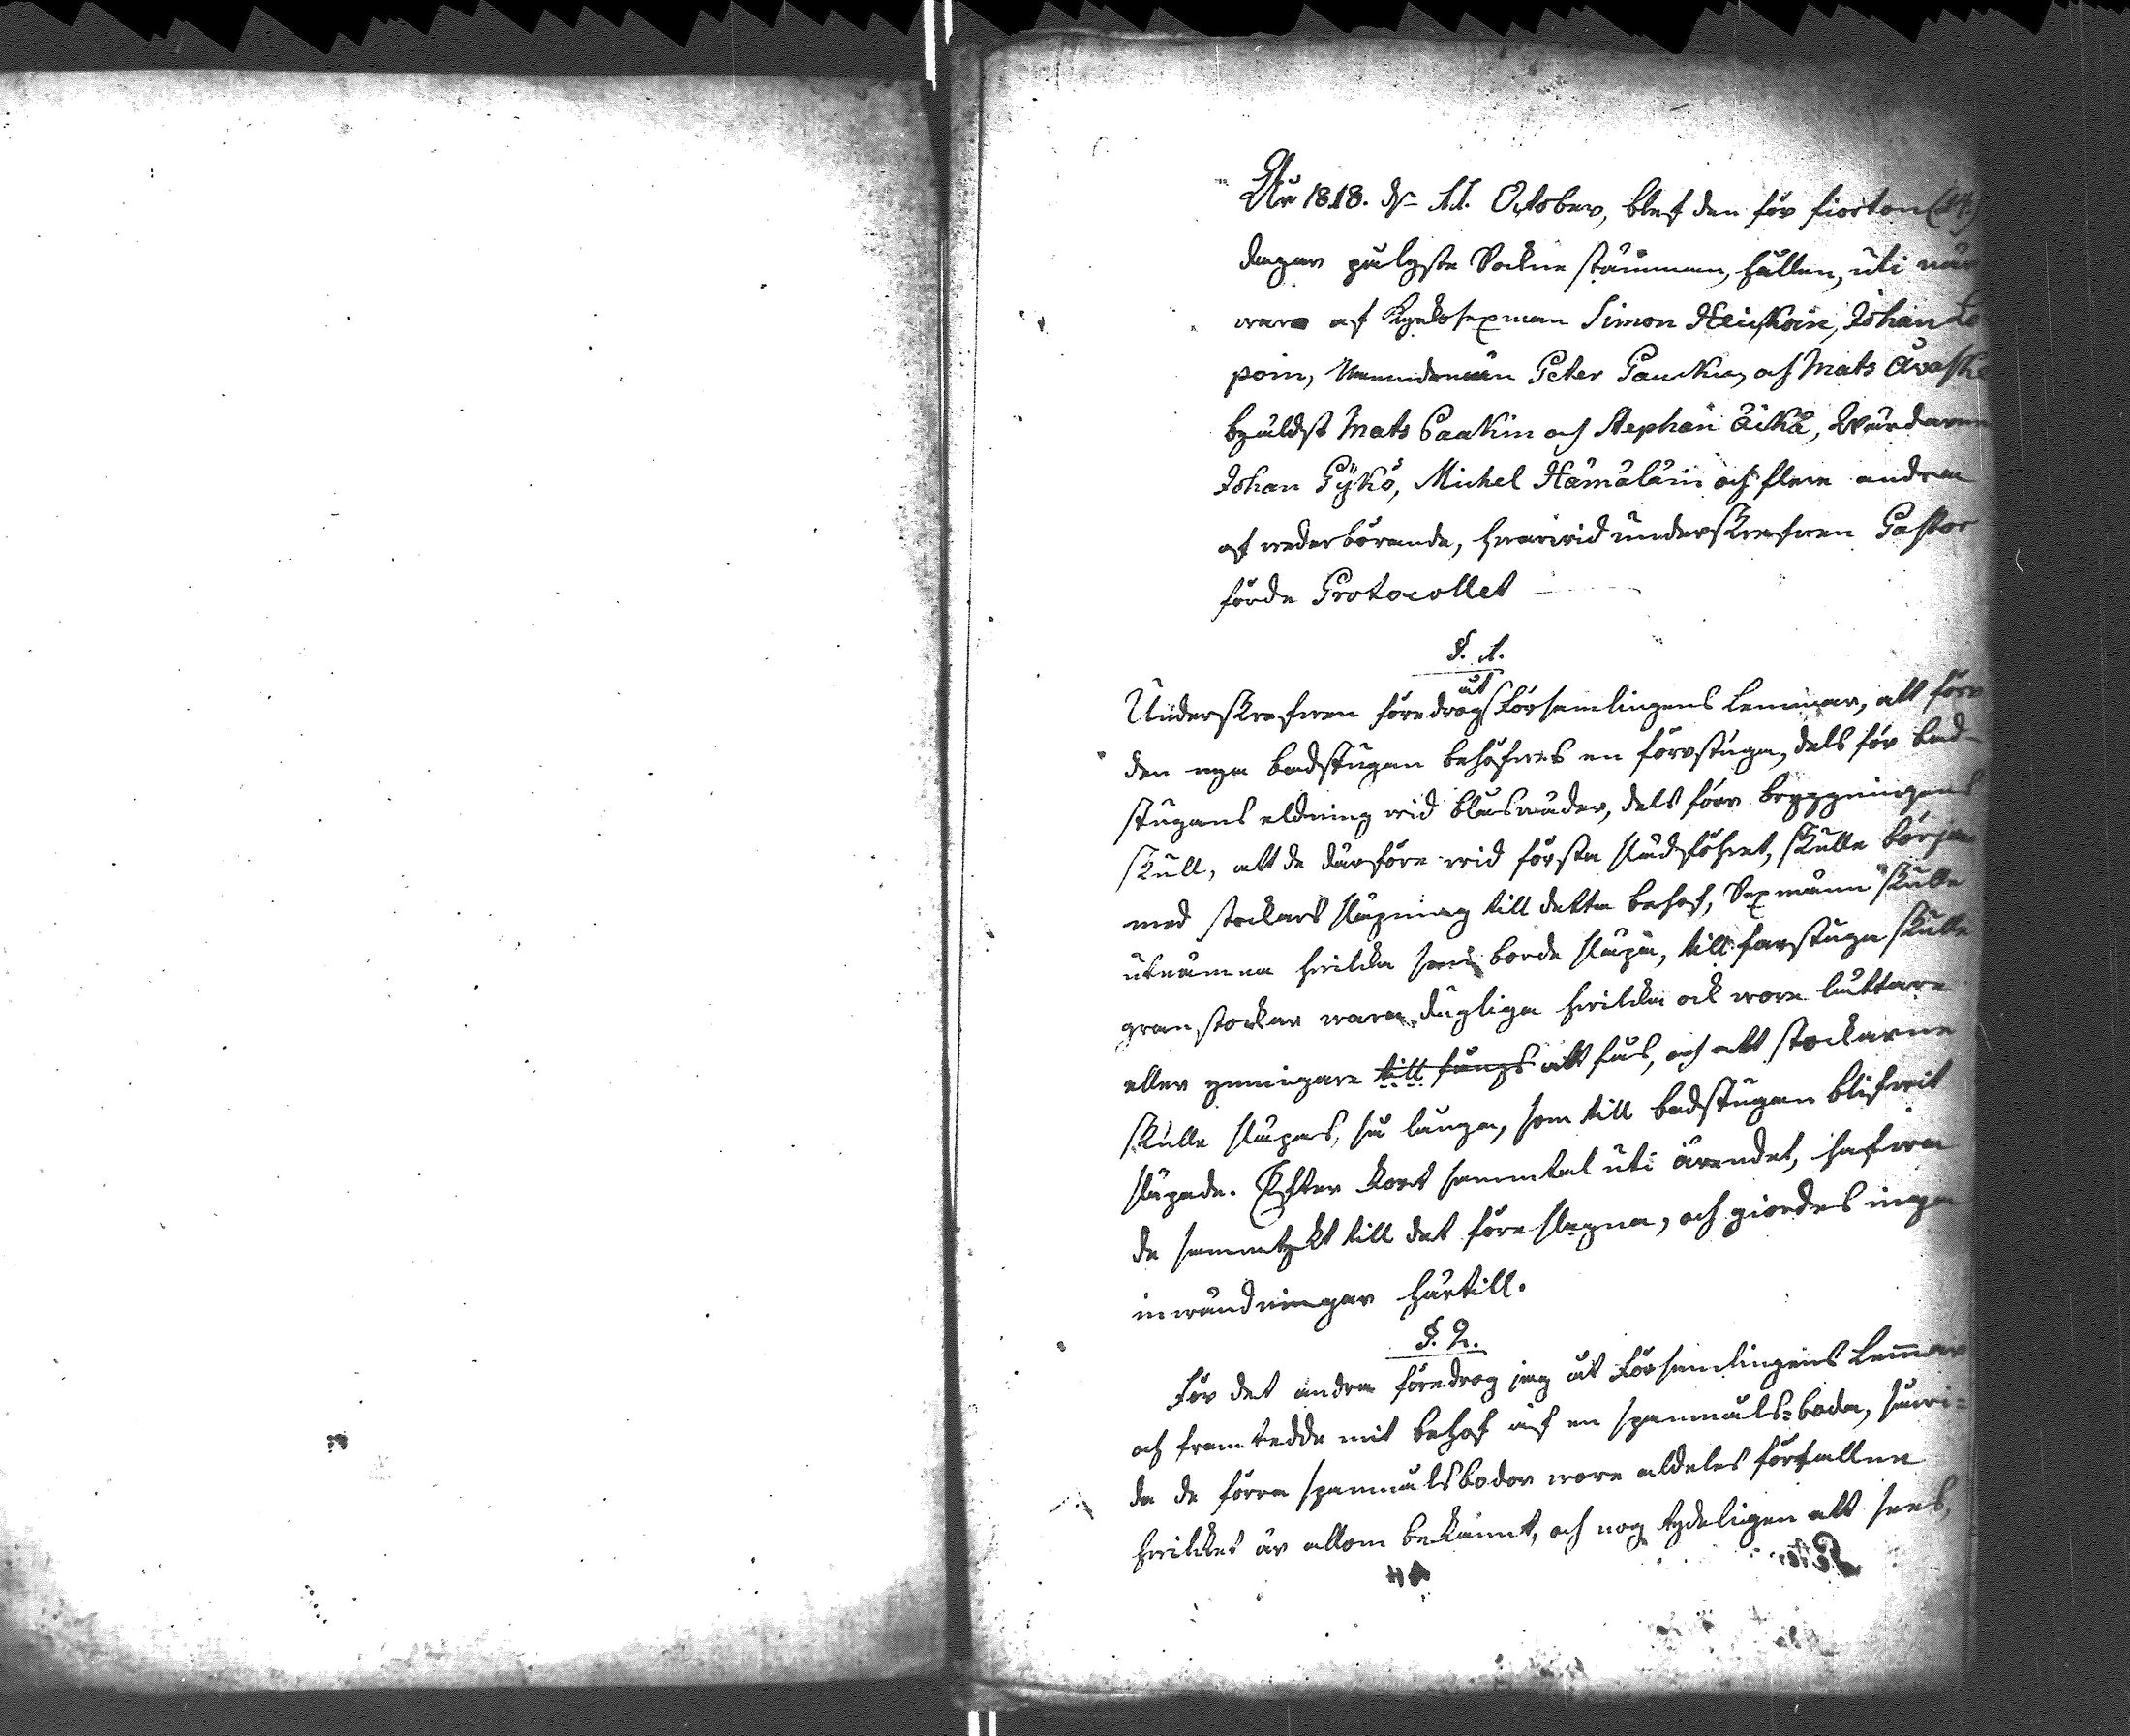 År 1818. dn 11. October, blef den för fiorton (14)
dagar pålyste Sockne stämman, hållen, uti när
waro af Kyrkosexman Simon Heiskain, Johan Lo
poin, Nämndemän Peter Paucku, och Mats Avaske
byäldst Mats Paakin och Stephan Äikä, Wärdarne
Johan Pÿkö, Michel Hämäläin och flere andra
af wederbörande, hwarwid underskrefwen Pastor
förde Protocollet
§. 1.
Underskrefwen föredrog åt Församlingens Lemmar, att förr
den nya badstugan behöfwes en förrstuga, dels för bad-
stugans eldning wid blåswäder, dels förr bryggningens
skull, att de därföre wid första slädföhret, skulle börja
med stockars släpning till detta behof, Sexmänn skulle
utnämna hwilka som borde släpa, till farstuga skulle
gran stockar wara dugliga hwilka ock wore lättare
eller gynnigare till fångs att fås, och att stockarne
skulle släpas, så långa, som till badstugan blifwit
släpade. Efter kort samtal uti ärendet, hafwa
de samtykt till det föreslagna, och giordes inga
inwändningar härtill.
§. 2.
För det andra föredrog jag åt Församlingens Lemmar
och framtedde mit behof af en spanmåls=boda, hwari=
da de förra spanmålsbodor wore aldeles förfallne
hwilket är allom bekannt, och nog tydeligen att sees,